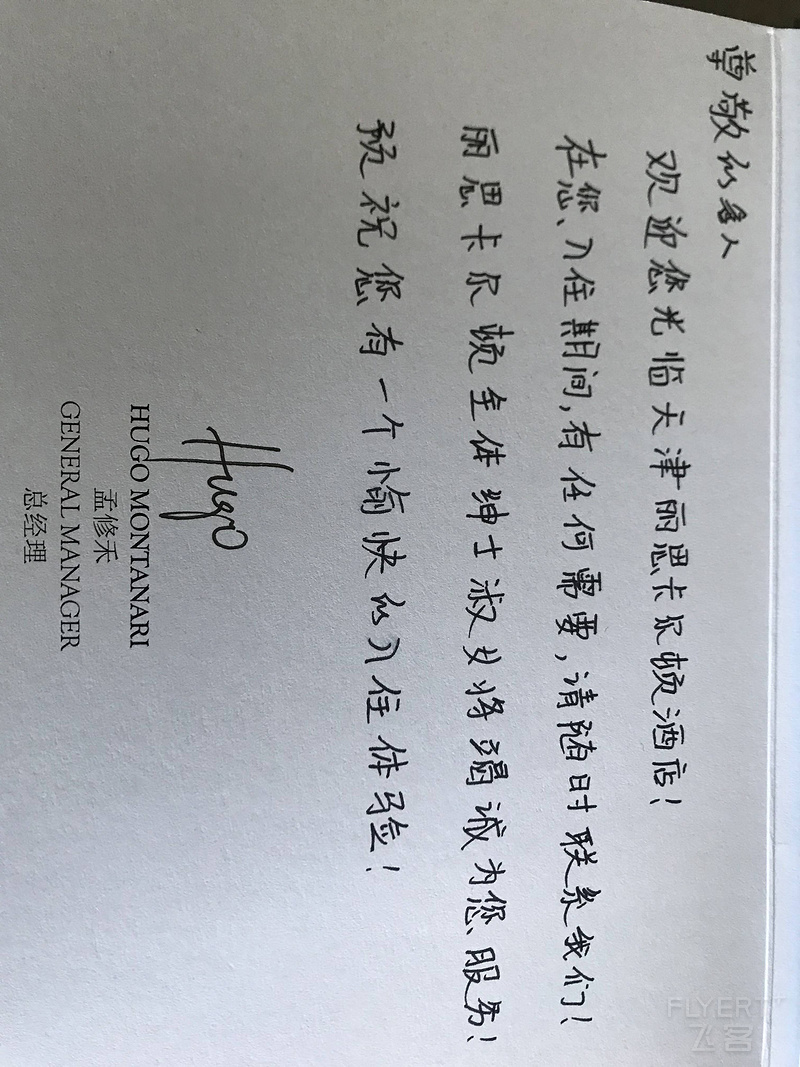 尊敬的客人
欢迎您光临天津丽思卡尔顿酒店!
在您入住期间,有任何需要,请随时联系我们!
丽思卡尔顿全体绅士淑女将竭诚为您服务!
预祝您有一个愉快的入住体验!
Hugo
HUGO MONTANARI
孟修禾
GENERAL MANAGER
总经理
FLYERT
飞客